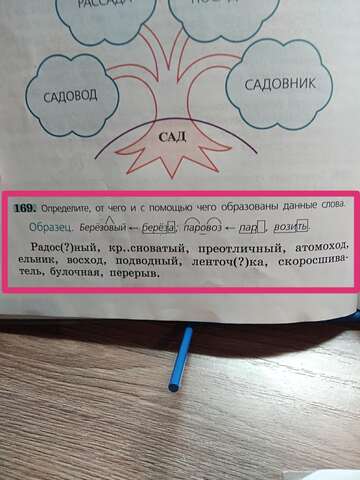 РАССАДА
САДОВОД
САДОВНИК
САД
169. Определите, от чего и с помощью чего образованы данные слова.
Образец. Берёзовый ← берёза; паровоз ← пар, возить.
Радос(?)ный, кр..сноватый, преотличный, атомоход,
ельник, восход, подводный, ленточ(?)ка, скоросшива-
тель, булочная, перерыв.